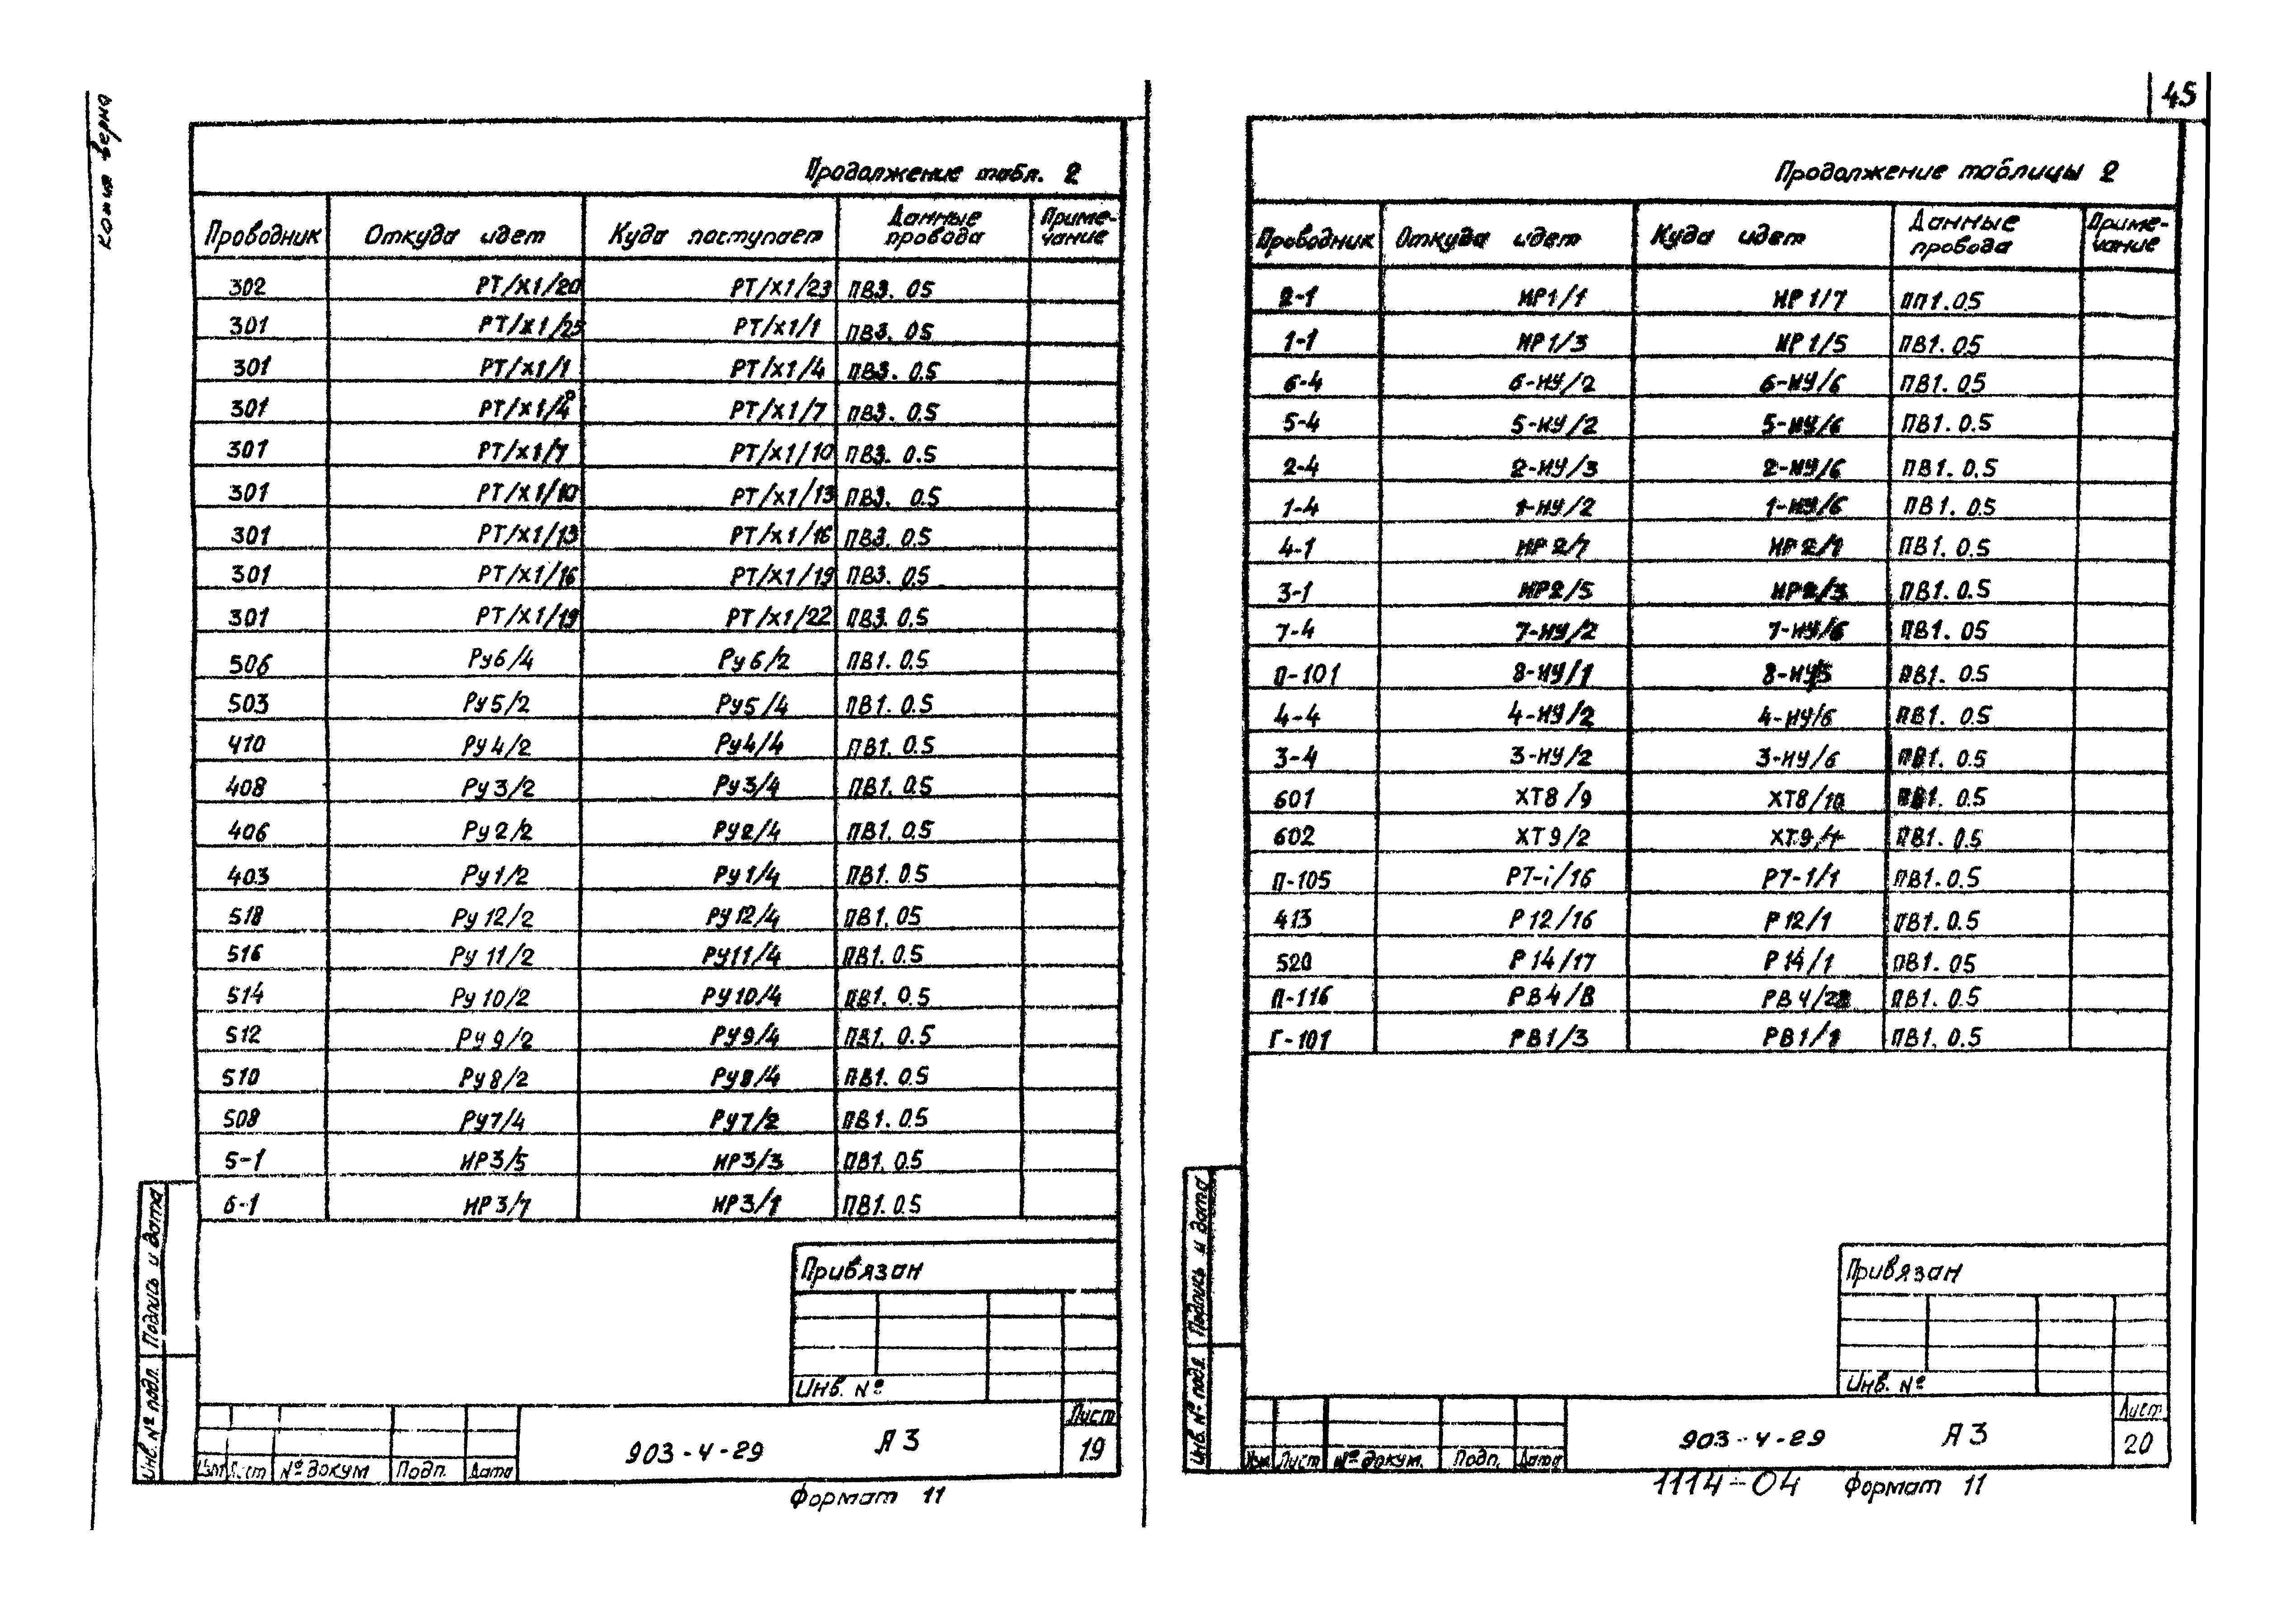 45
копия верна
Продолжение табл. 2
Проводник Откуда идет Куда поступает Данные провода Приме-чание
302 РТ/Х1/20 РТ/Х1/23 ПВ3. 05
301 РТ/Х1/25 РТ/Х1/1 ПВ3. 05
301 РТ/Х1/1 РТ/Х1/4 ПВ3. 0.5
301 РТ/Х1/4 РТ/Х1/7 ПВ3. 0.5
301 РТ/Х1/7 РТ/Х1/10 ПВ3. 0.5
301 РТ/Х1/10 РТ/Х1/13 ПВ3. 0.5
301 РТ/Х1/13 РТ/Х1/16 ПВ3. 0.5
301 РТ/Х1/16 РТ/Х1/19 ПВ3. 0.5
301 РТ/Х1/19 РТ/Х1/22 ПВ3. 0.5
506 Ру6/4 Ру6/2 ПВ1. 0.5
503 Ру5/2 Ру5/4 ПВ1. 0.5
410 Ру4/2 Ру4/4 ПВ1. 0.5
408 Ру3/2 Ру3/4 ПВ1. 0.5
406 Ру2/2 РУ2/4 ПВ1. 0.5
403 Ру1/2 Ру1/4 ПВ1. 0.5
518 Ру12/2 РУ12/4 ПВ1. 05
516 Ру11/2 РУ11/4 ПВ1. 0.5
514 Ру10/2 РУ10/4 ПВ1. 0.5
512 РУ9/2 РУ9/4 ПВ1. 0.5
510 Ру8/2 РУ8/4 ПВ1. 0.5
508 РУ7/4 РУ7/2 ПВ1. 0.5
5-1 ИР3/5 ИР3/3 ПВ1. 0.5
6-1 ИР3/7 ИР3/1 ПВ1. 0.5
Привязан
Инв. №
Изм Лист № докум Подп. Дата
903-4-29 А3
Лист
19
Формат 11
Инв. № подл. Подпись и дата
Продолжение таблицы 2
Проводник Откуда идет Куда идет Данные провода Приме-чание
2-1 ИР1/1 ИР1/7 ПП1. 0.5
1-1 ИР1/3 ИР1/5 ПВ1. 0.5
6-4 6-ИУ/2 6-ИУ/6 ПВ1. 0.5
5-4 5-ИУ/2 5-ИУ/6 ПВ1. 0.5
2-4 2-ИУ/3 2-ИУ/6 ПВ1. 0.5
1-4 1-ИУ/2 1-ИУ/6 ПВ1. 0.5
4-1 ИР2/7 ИР2/1 ПВ1. 0.5
3-1 ИР2/5 ИР2/3 ПВ1. 0.5
7-4 7-ИУ/2 7-ИУ/6 ПВ1. 05
П-101 8-ИУ/1 8-ИУ/5 ПВ1. 0.5
4-4 4-ИУ/2 4-ИУ/6 ПВ1. 0.5
3-4 3-ИУ/2 3-ИУ/6 ПВ1. 0.5
601 ХТ8/9 ХТ8/10 ПВ1. 0.5
602 ХТ9/2 ХТ9/1 ПВ1. 0.5
П-105 РТ-1/16 РТ-1/1 ПВ1. 0.5
413 Р12/16 Р12/1 ПВ1. 0.5
520 Р14/17 Р14/1 ПВ1. 05
П-116 РВ4/8 РВ4/ ПВ1. 0.5
Г-101 РВ1/3 РВ1/1 ПВ1. 0.5
Привязан
Инв. №
Изм Лист № докум. Подп. Дата
903-4-29 А3
Лист
20
1114-04 Формат 11
Инв. № подл. Подпись и дата